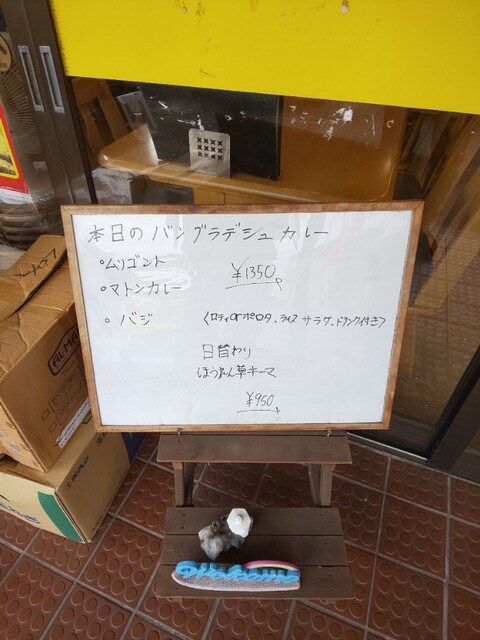 本日のバングラデシュカレー
・ムリゴント
¥1350
・マトンカレー
・バジ
(ロティorポロタ、ライス、サラダ、ドリンク付き)
日替わり
ほうれん草キーマ
¥950